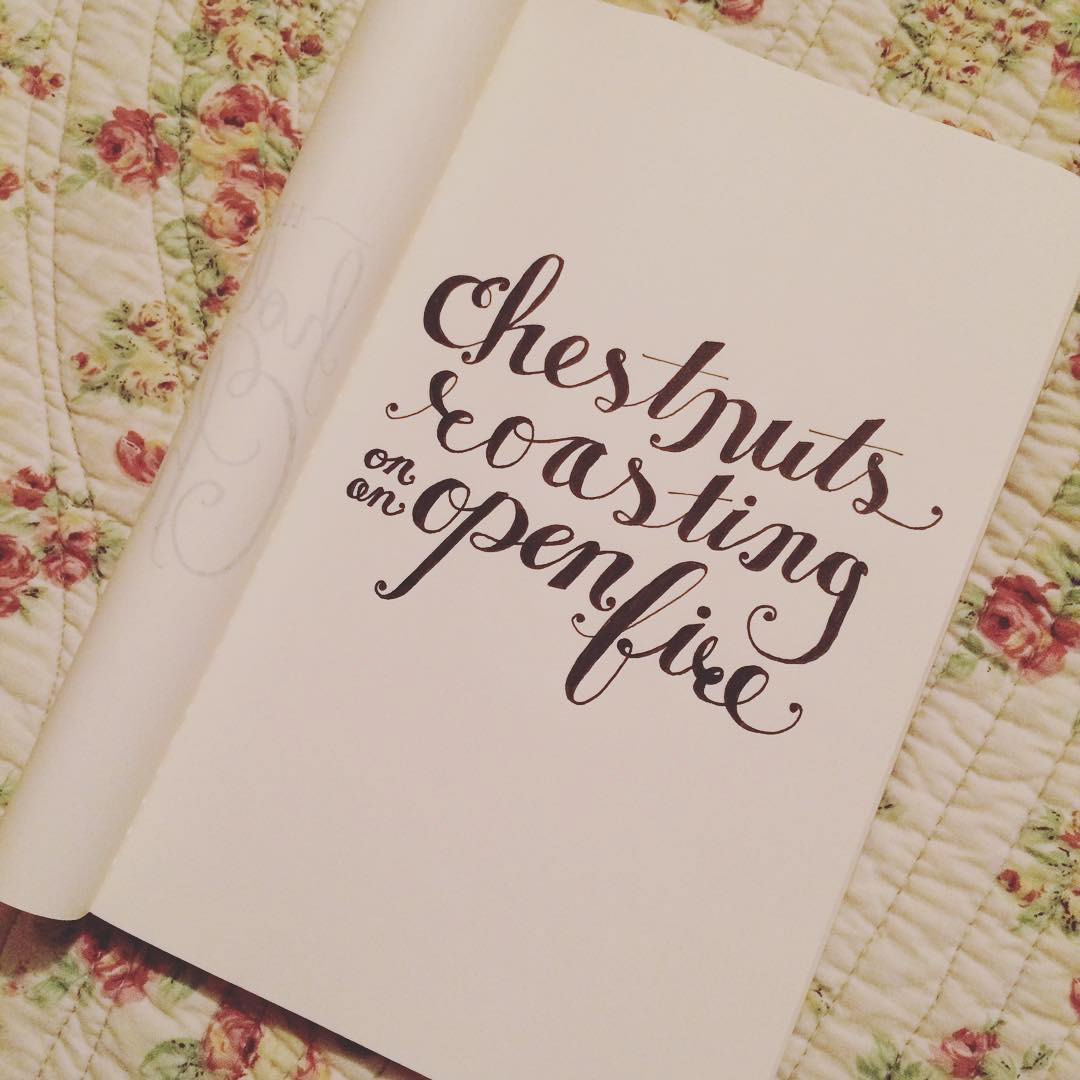 Chestnuts
roasting
on
an
open
fire